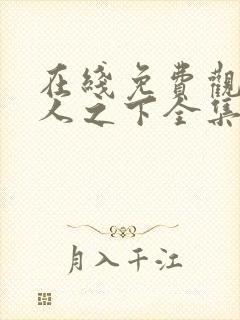 在綫免費觀
人之下全集
月入千江